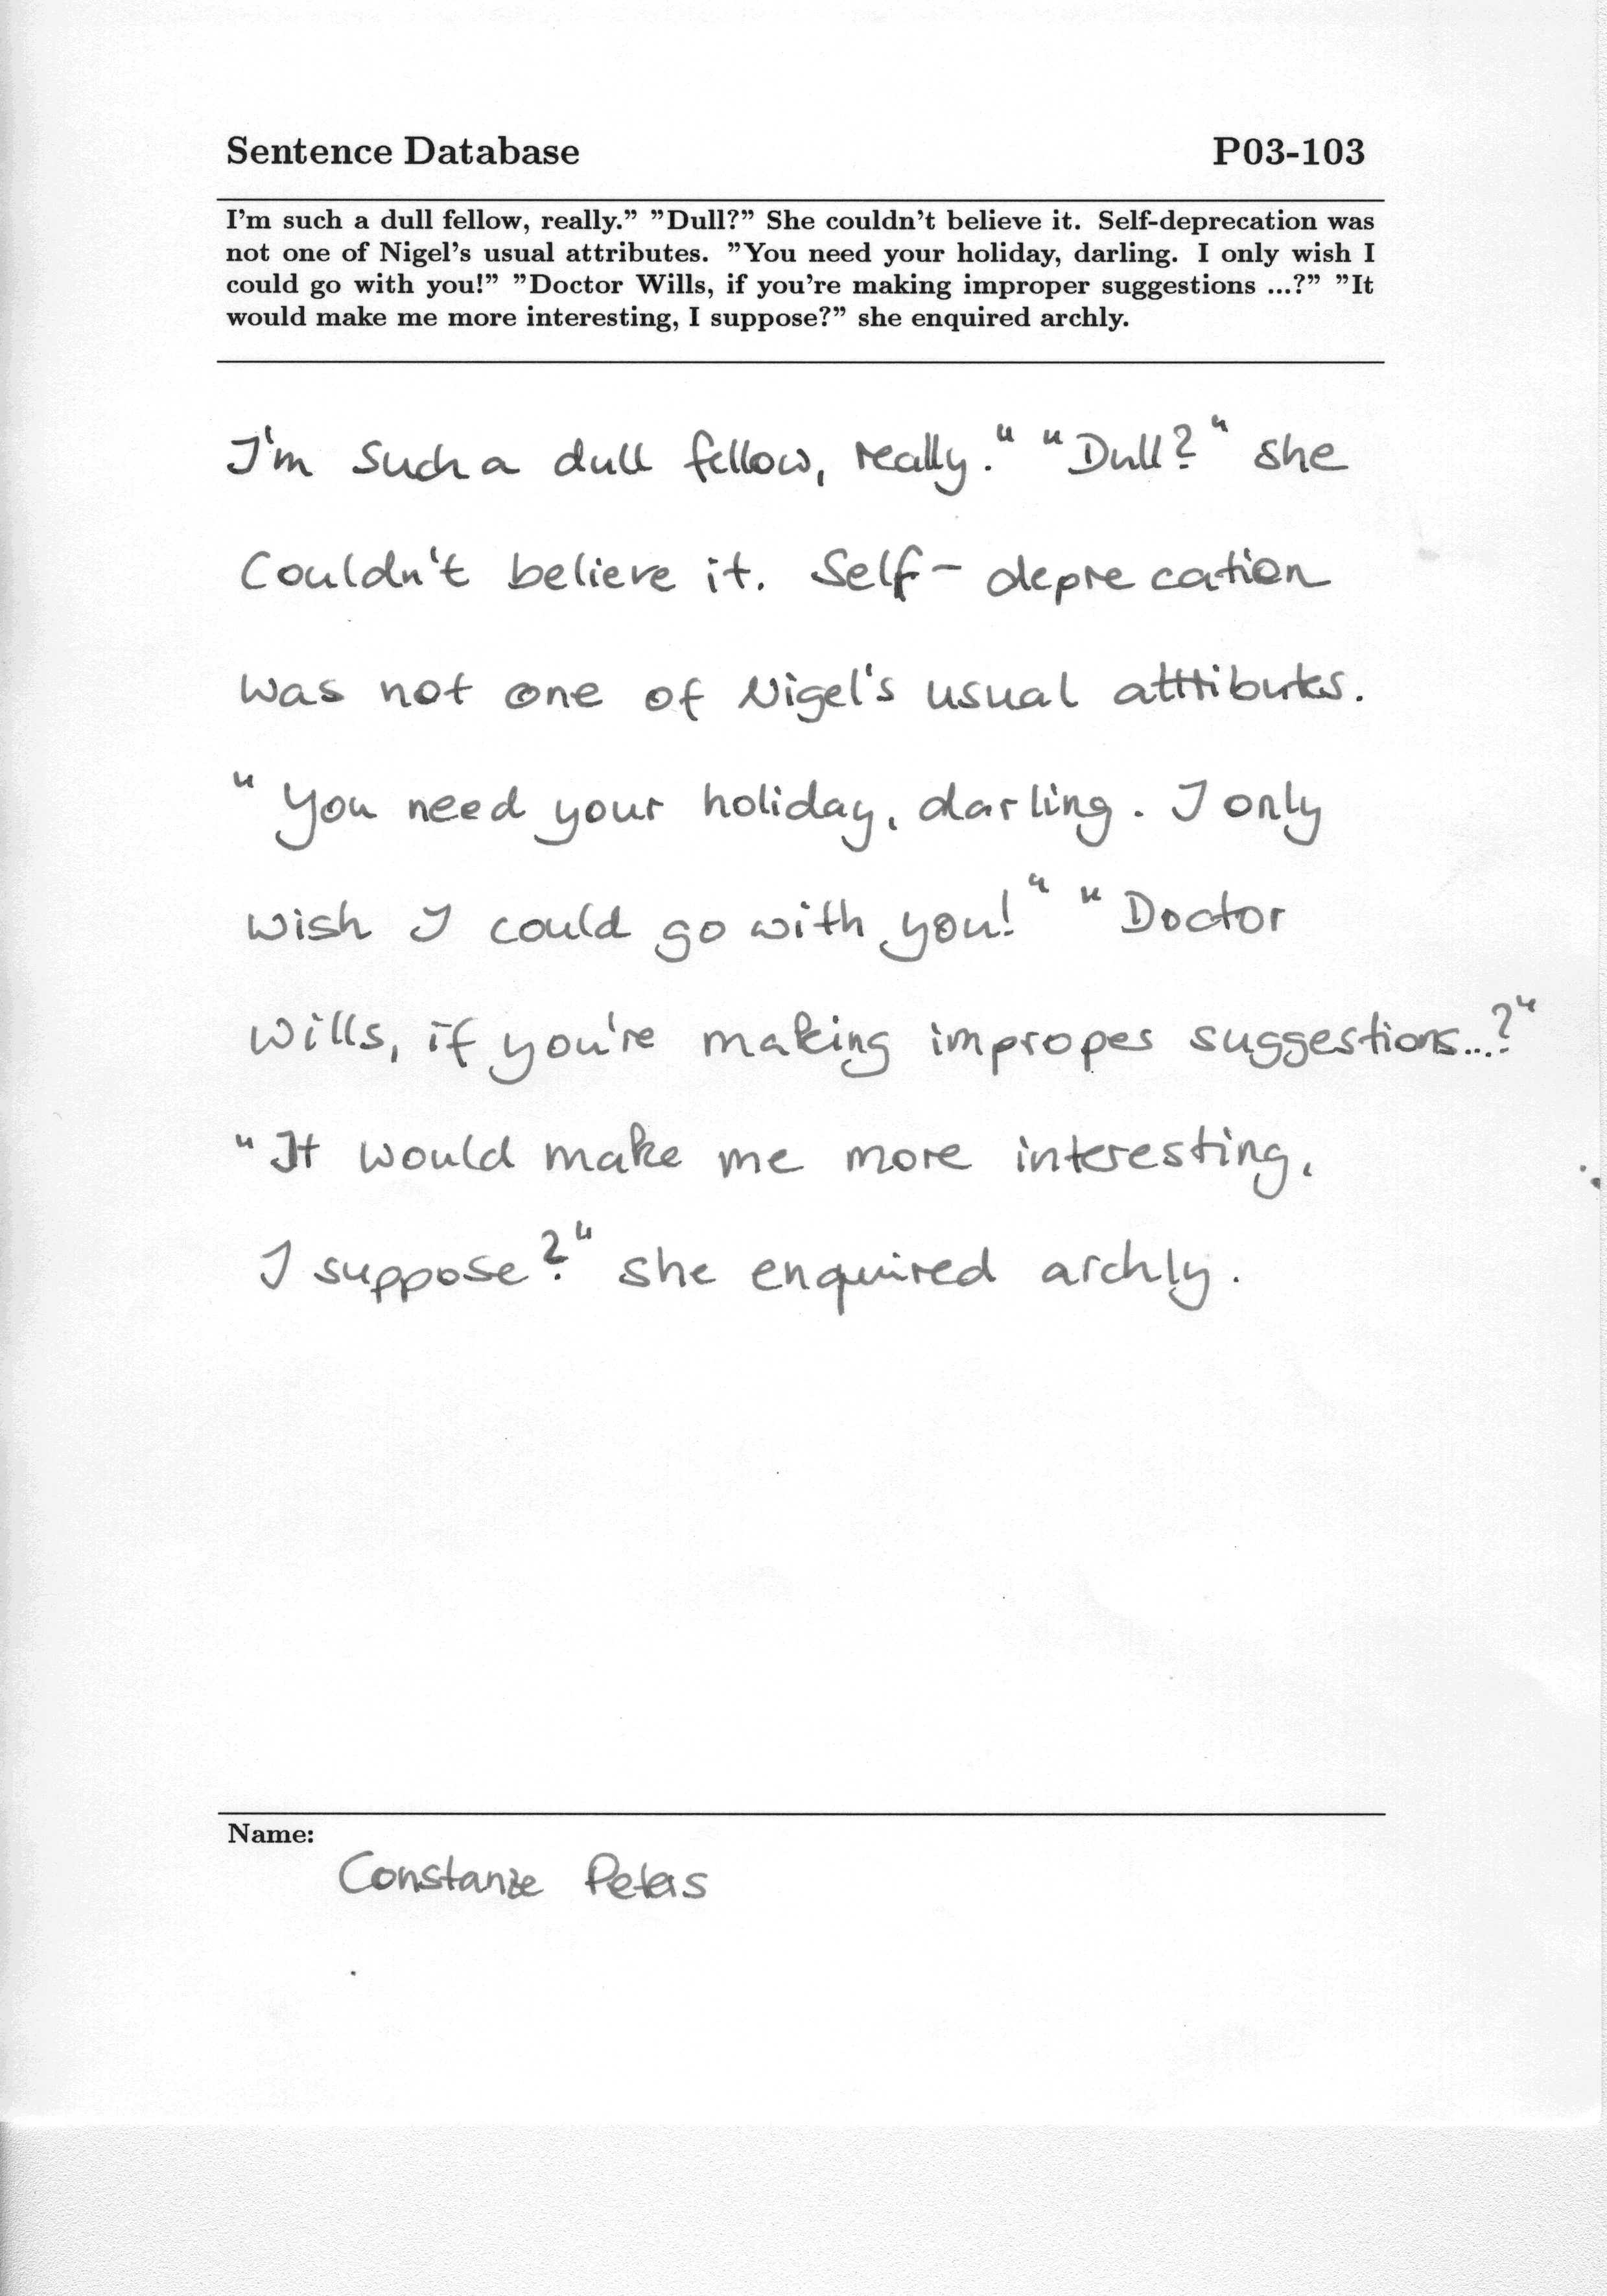 Sentence Database P03-103
I'm such a dull fellow, really.” ”Dull?” She couldn't believe it. Self-deprecation was
not one of Nigel's usual attributes. ”You need your holiday, darling. I only wish I
could go with you!” ”Doctor Wills, if you're making improper suggestions ...?” ”It
would make me more interesting, I suppose?” she enquired archly.
I'm such a dull fellow, really." "Dull?" she
couldn't believe it. Self-deprecation
was not one of Nigel's usual attributes.
"You need your holiday, darling. I only
wish I could go with you!" "Doctor
Wills, if you're making improper suggestions...?"
"It would make me more interesting,
I suppose?" she enquired archly.
Name:
Constanze Peters